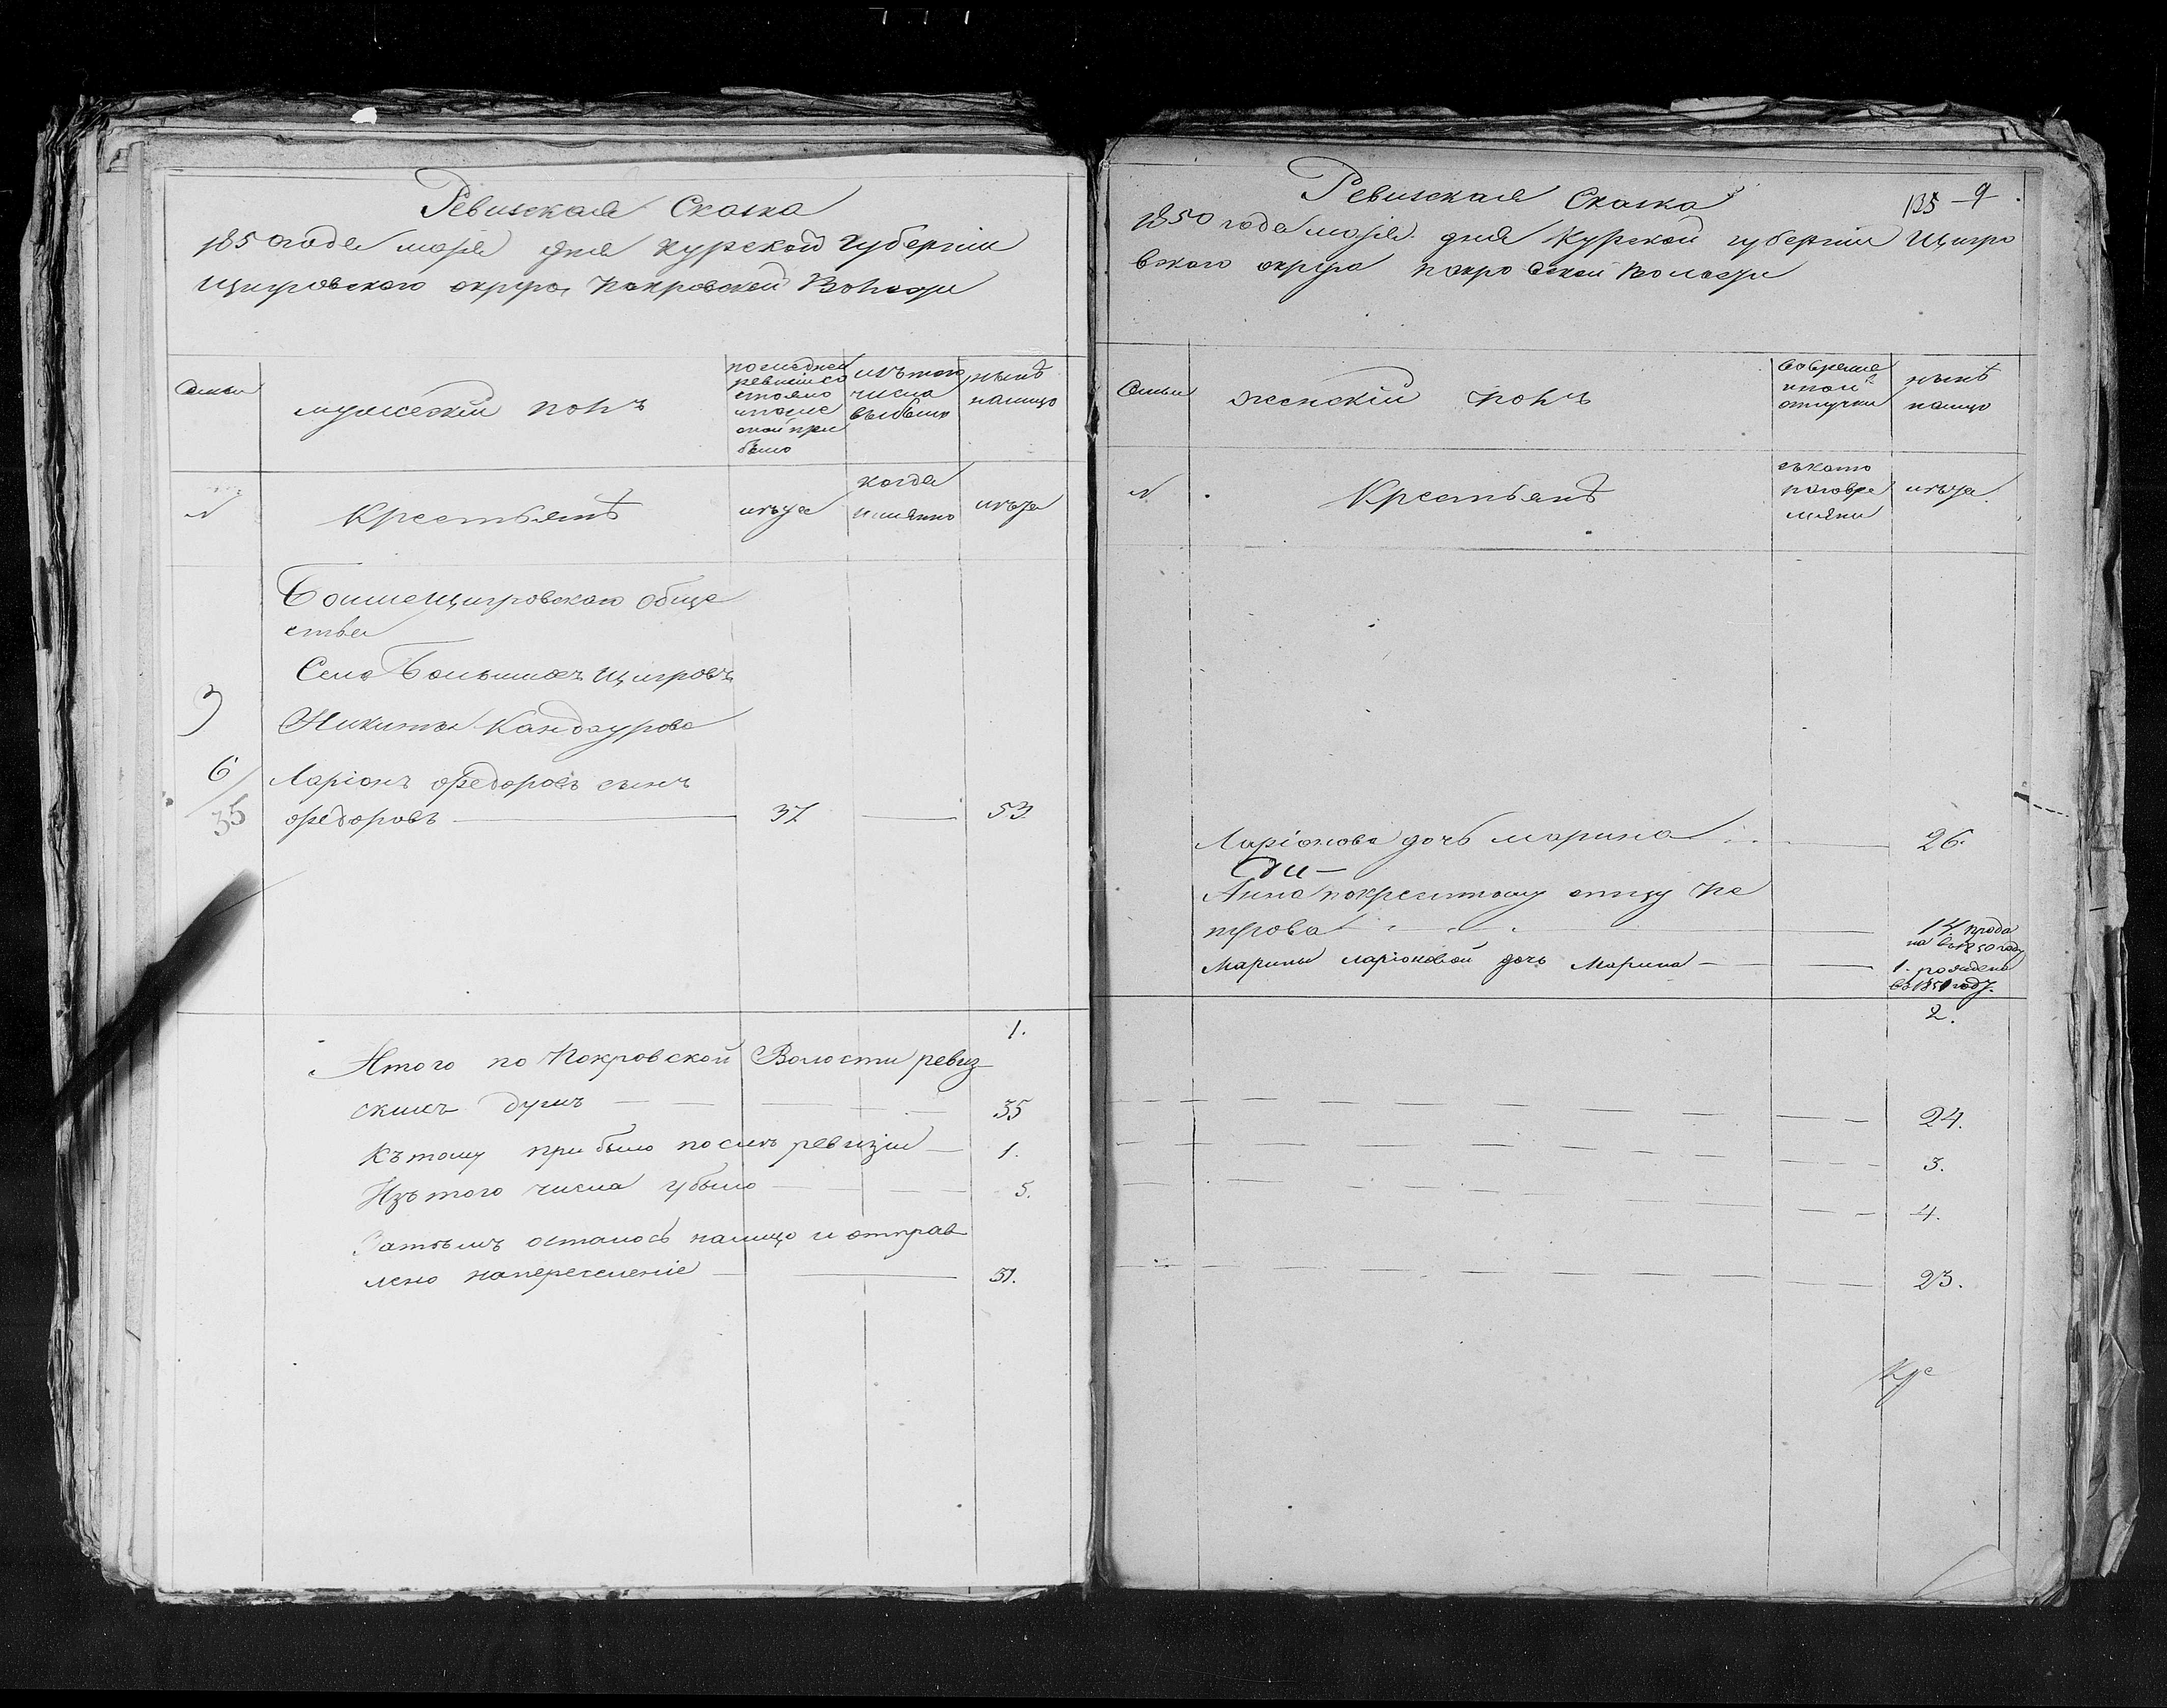 Ревиская Скаска
1850 года маія дня Курской губерніи
Щигровского округа Покровской Волости
Семьи
мужескій полъ
последней
ревизіи со
стояло
и после
оной при
было
изъ того
числа
выбыло
ныне
налицо
№
Крестьянъ
лѣта
когда
имянно
лѣта
Большещигровскаго обще
ства
Село Большихъ Щигровъ
3
Никиты Кандаурова
6
35
Ларіонъ Федоровъ сынъ
Федоровъ 37 53
1.
Итого по Покровской Волости ревиз
скихъ душъ 35
Къ тому прибыло после ревизіи 1.
Изъ того числа убыло 5.
Затѣмъ осталось налицо и отправ
лено на переселеніе 31.
Ревиская Скаска
135 9
1850 года маія дня Курской губерніи Щигро
вского округа покровской волости
Семьи
женскій полъ
вовремен
ной
отлучки
нынѣ
налицо
№
Крестьянъ
съ кото
раго вре
мяни
лѣта
Ларіонова дочь Марина 26.
Анна по крестному отцу Пе
трова 14. прода
на въ 1850 году
Марины Ларіоновой дочь Марина 1. рождена
въ 1850 году.
2.
24.
3.
4.
23.